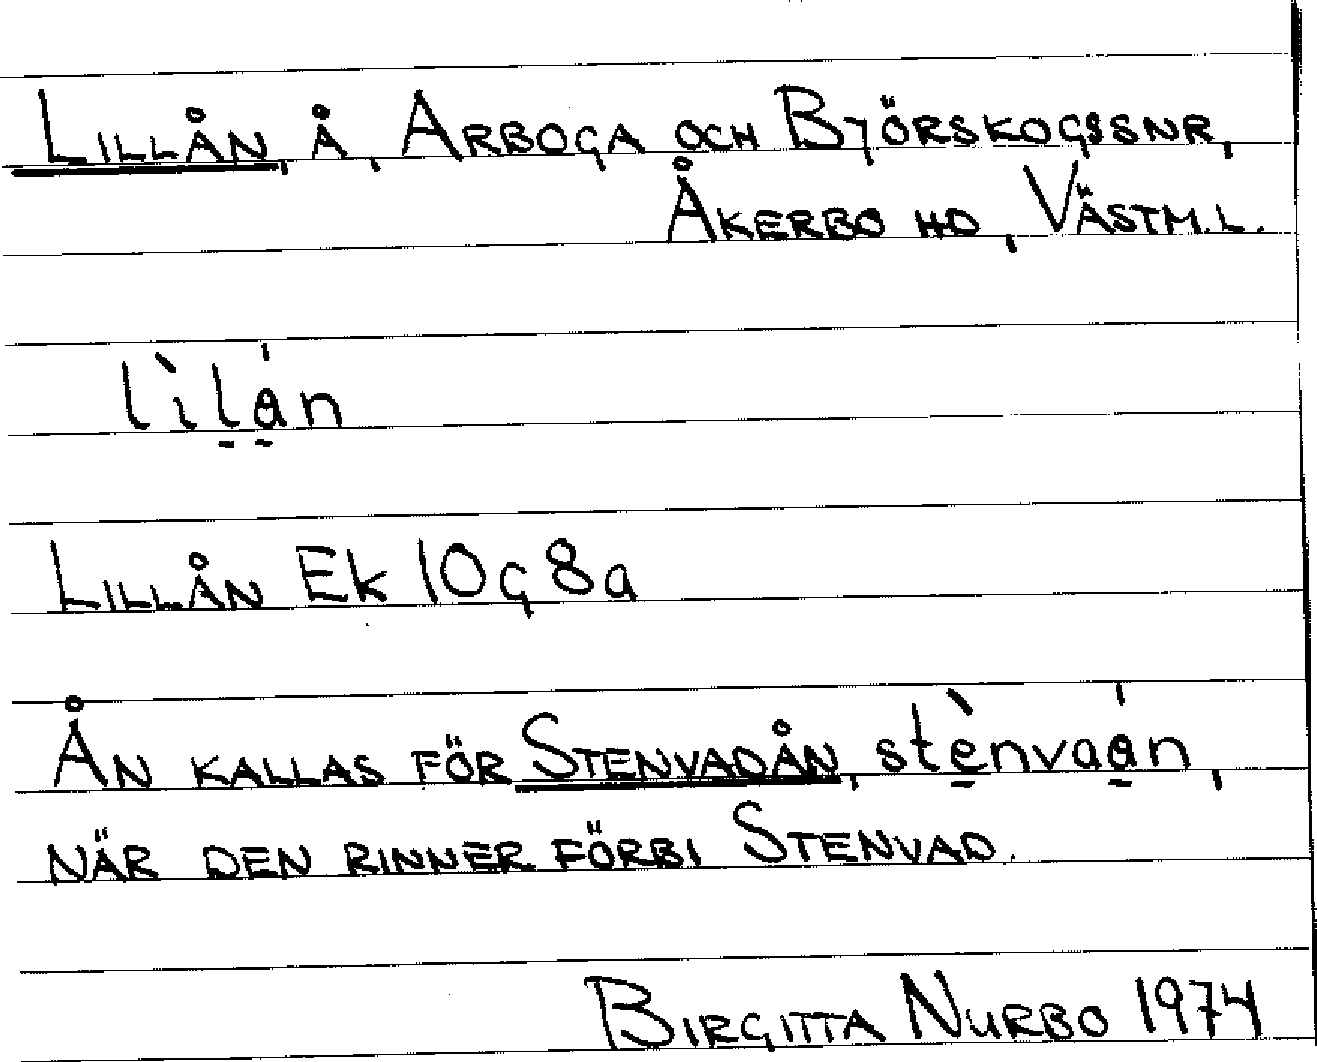 LILLÅN, Å, ARBOGA OCH BJÖRSKOGSSNR,
ÅKERBO HD, VÄSTM.L.
lìl̠ǻ̠n
LILLÅN Ek 10g 8a
ÅN KALLAS FÖR STENVADÅN, stè̠nvaǻ̠n,
NÄR DEN RINNER FÖRBI STENVAD.
BIRGITTA NURBO 1974